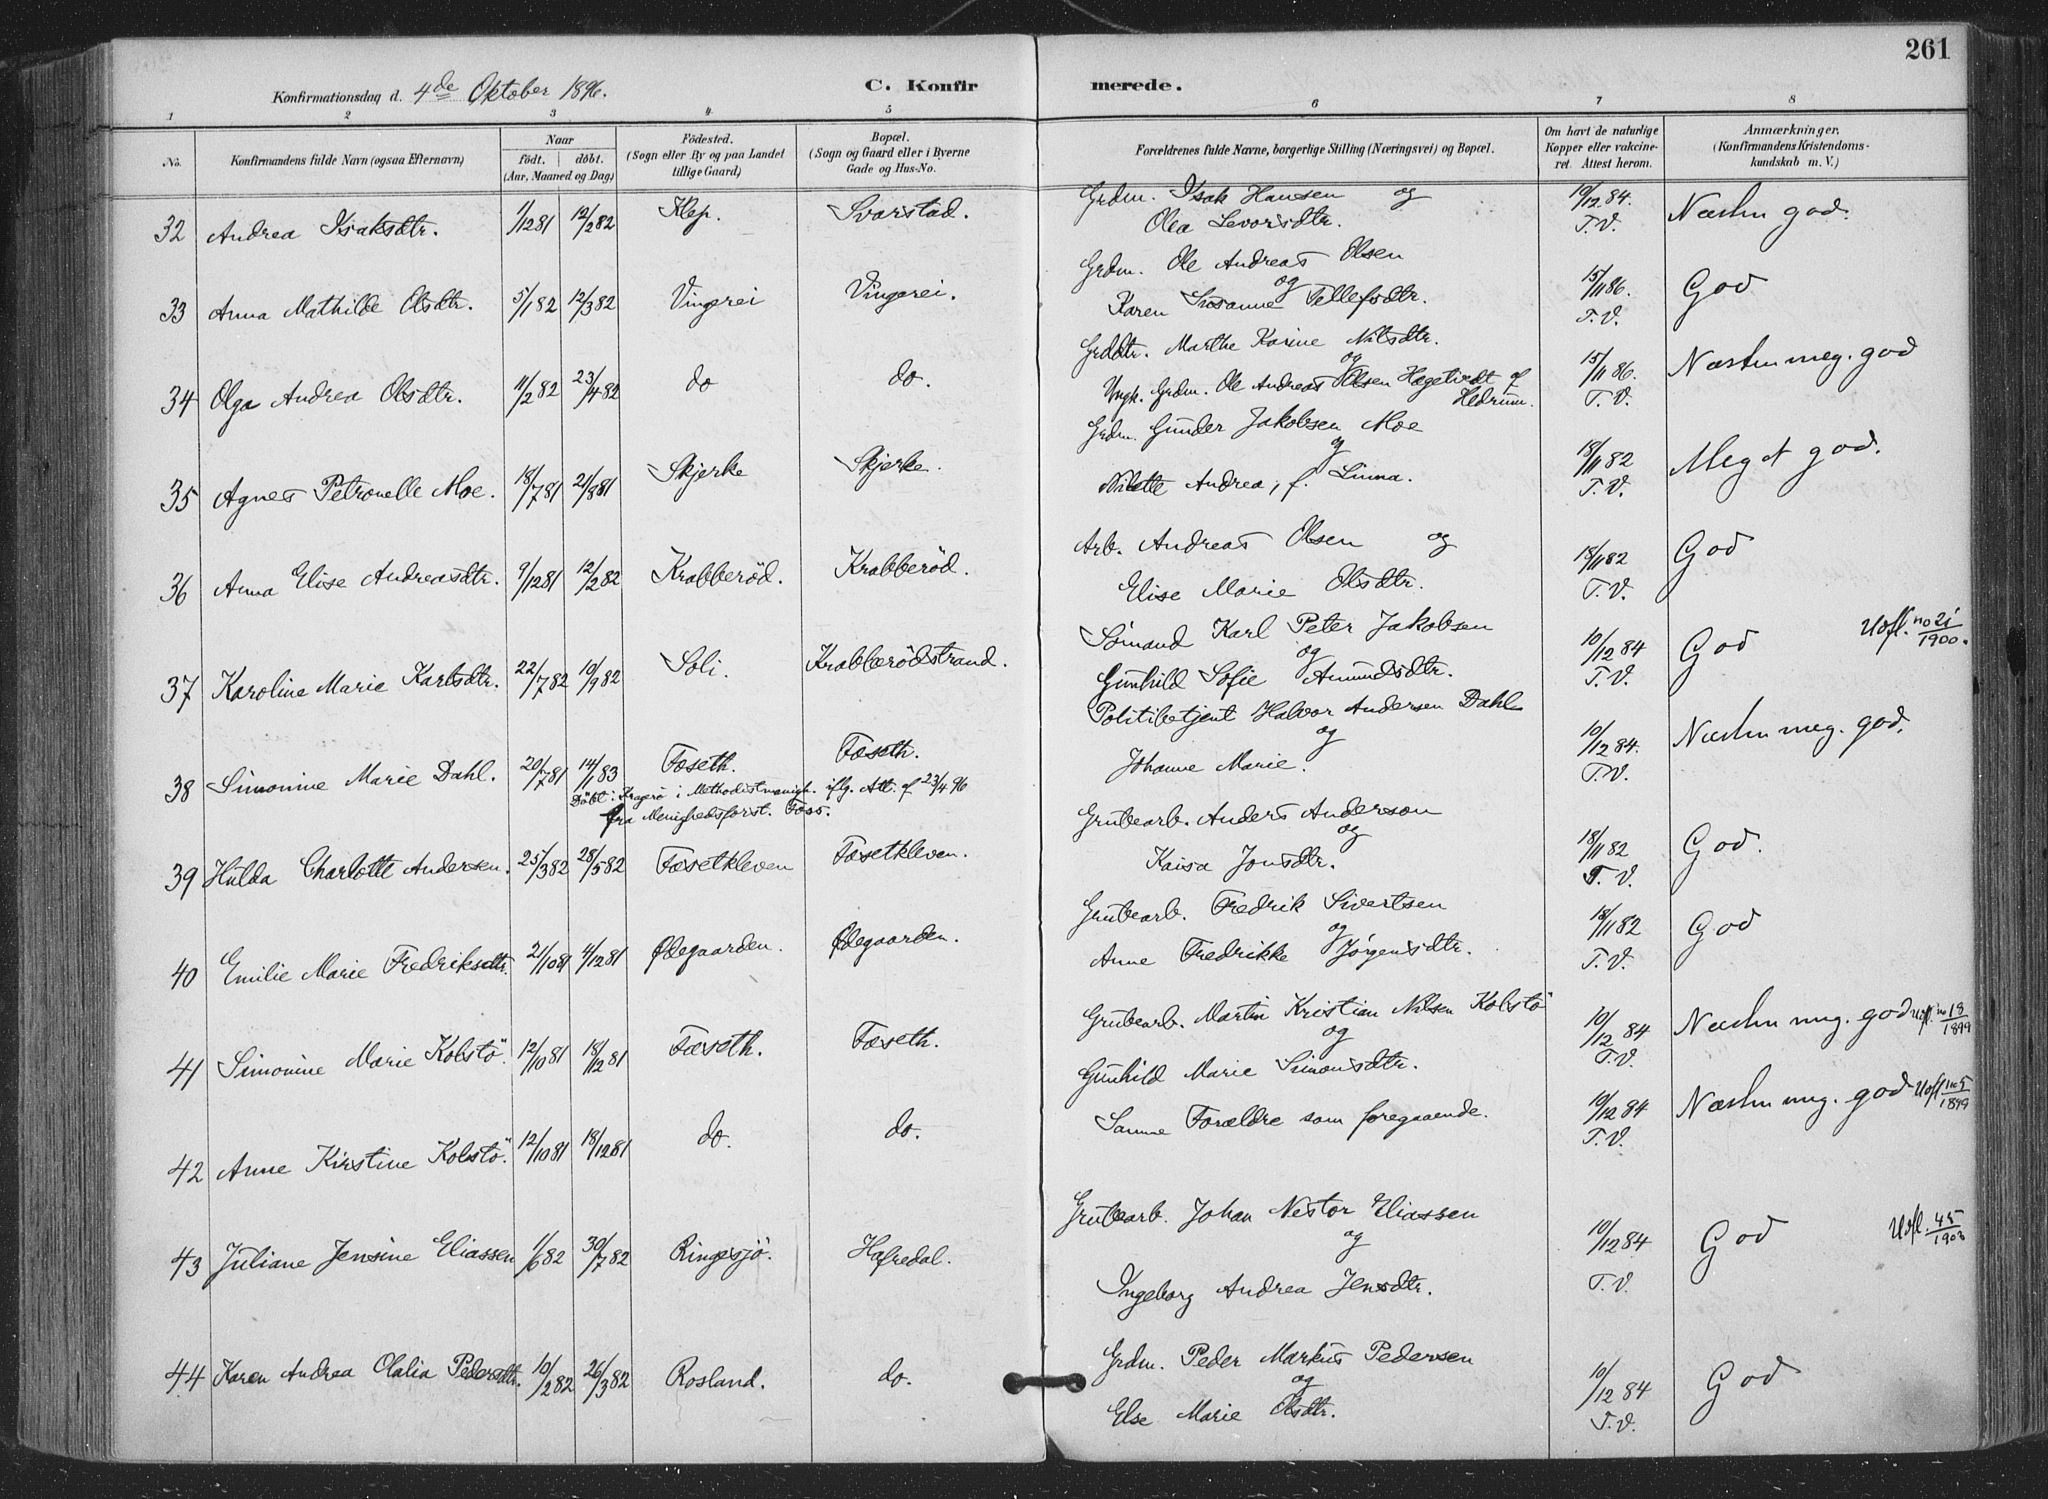 261
Konfirmationsdag d. 4de Oktober 1896. C. Konfirmerede.
1 2 3 4 5 6 7 8
No. Konfirmandens fulde Navn (ogsaa Efternavn) Naar födt. döbt. (Aar, Maaned og Dag) Födested. (Sogn eller By og paa Landet tillige Gaard) Bopæl. (Sogn og Gaard eller i Byerne Gade og Hus-No. Forældrenes fulde Navne, borgerlige Stilling (Næringsvei) og Bopæl. Om havt de naturlige Kopper eller vakcineret. Attest herom. Anmærkninger. (Konfirmandens Kristendomskundskab m. V.)
32 Andrea Isaksdtr. 1/1281 12/282 Klep. Svarstad. Grdm. Isak Hansen og Olea Levorsdtr. 10/12 84. T.V. Næsten god.
33 Anna Mathilde Olsdtr. 5/182 12/382 Vingerei Vingerei. Grdm. Ole Andreas Olsen og Karen Susanne Tellefsdtr. 15/1186. T.V. God
34 Olga Andrea Olsdtr. 11/282 23/482 do do. Grddtr. Marthe Karine Nilsdtr. og Ungk. Grdm. Ole Andreas Olsen Hagetvedt af Hedrum. 15/1186. T.V. Næsten meg. god
35 Agnes Petronelle Moe. 18/781 21/881 Skjerke Skjerke. Grdm. Gunder Jakobsen Moe og Nilette Andrea, f. Linna. 18/1182 T.V. Meget god.
36 Anna Elise Andreasdtr. 9/1281 12/282 Krabberöd. Krabberöd. Arb. Andreas Olsen og Elise Marie Olsdtr. 18/1182 T.V. God
37 Karoline Marie Karlsdtr. 22/782 10/982 Soli. Krabberödstrand. Sömand Karl Peter Jakobsen og Gunhild Sofie Amundsdtr. 10/1284 T.V. God Udfl. no 21/1900.
38 Simonine Marie Dahl. 20/781 14/183 Fæseth. Fæseth. Politibetjent Halvor Andersen Dahl og Johanne Marie. 10/1284. T.V. Næsten meg. god.
Döbt i Kragerö i Methodistmenigh. iflg. Att. af 23/4 96
fra Menighedsforst. Foss.
39 Hulda Charlotte Andersen. 25/382 28/582 Fæsetkleven Fæsetkleven. Grubearb. Anders Anderson og Kaisa Jonsdtr. 18/1182 T.V. God.
40 Emilie Marie Fredriksdtr. 21/1081 4/1281 Ødegaarden. Ødegaarden. Grubearb. Fredrik Sivertsen og Anne Fredrikke Jörgensdtr. 18/1182 T.V. God
41 Simonine Marie Kolstö. 12/1081 18/1281 Fæseth. Fæseth. Grubearb. Martin Kristian Nilsen Kolstö og Gunhild Marie Simonsdtr. 10/12 84 T.V. Næsten meg. god Udfl. no 18/1899
42 Anne Kirstine Kolstö. 12/1081 18/1281 do. do. Samme Forældre som foregaaende. 10/12 84 T.V. Næsten meg. god Udfl no 5/1899
43 Juliane Jensine Eliassen 1/682 30/782 Ringsjö. Hafredal. Grubearb. Johan Nestor Eliassen og Ingeborg Andrea Jensdtr. 10/1284 T.V. God Udfl. 45/1903
44 Karen Andrea Olalia Pedersdtr. 10/282 26/382 Rosland. do. Grdm. Peder Markus Pedersen og Else Marie Olsdtr. 10/12 84 T.V. God